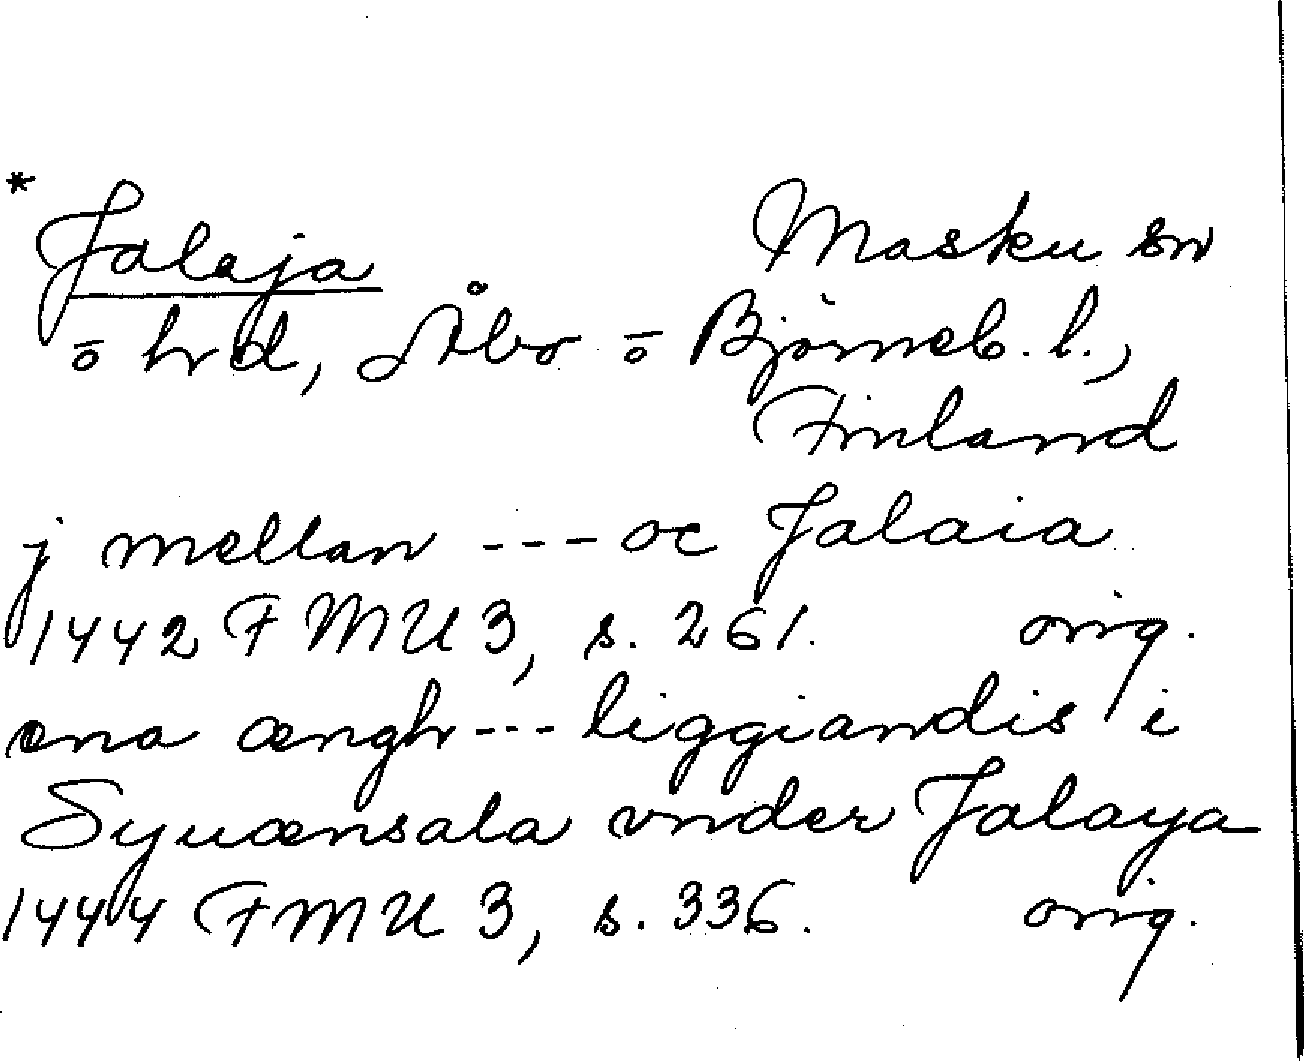 * Jalaja Masku sn
o hrd, Åbo o Björneb. l.,
Finland
j mellan --- oc Jalaia
1442 FMU 3, s. 261. orig.
ena ængh --- liggiandis i
Syuænsala vnder Jalaya
1444 FMU 3, s. 336. orig.